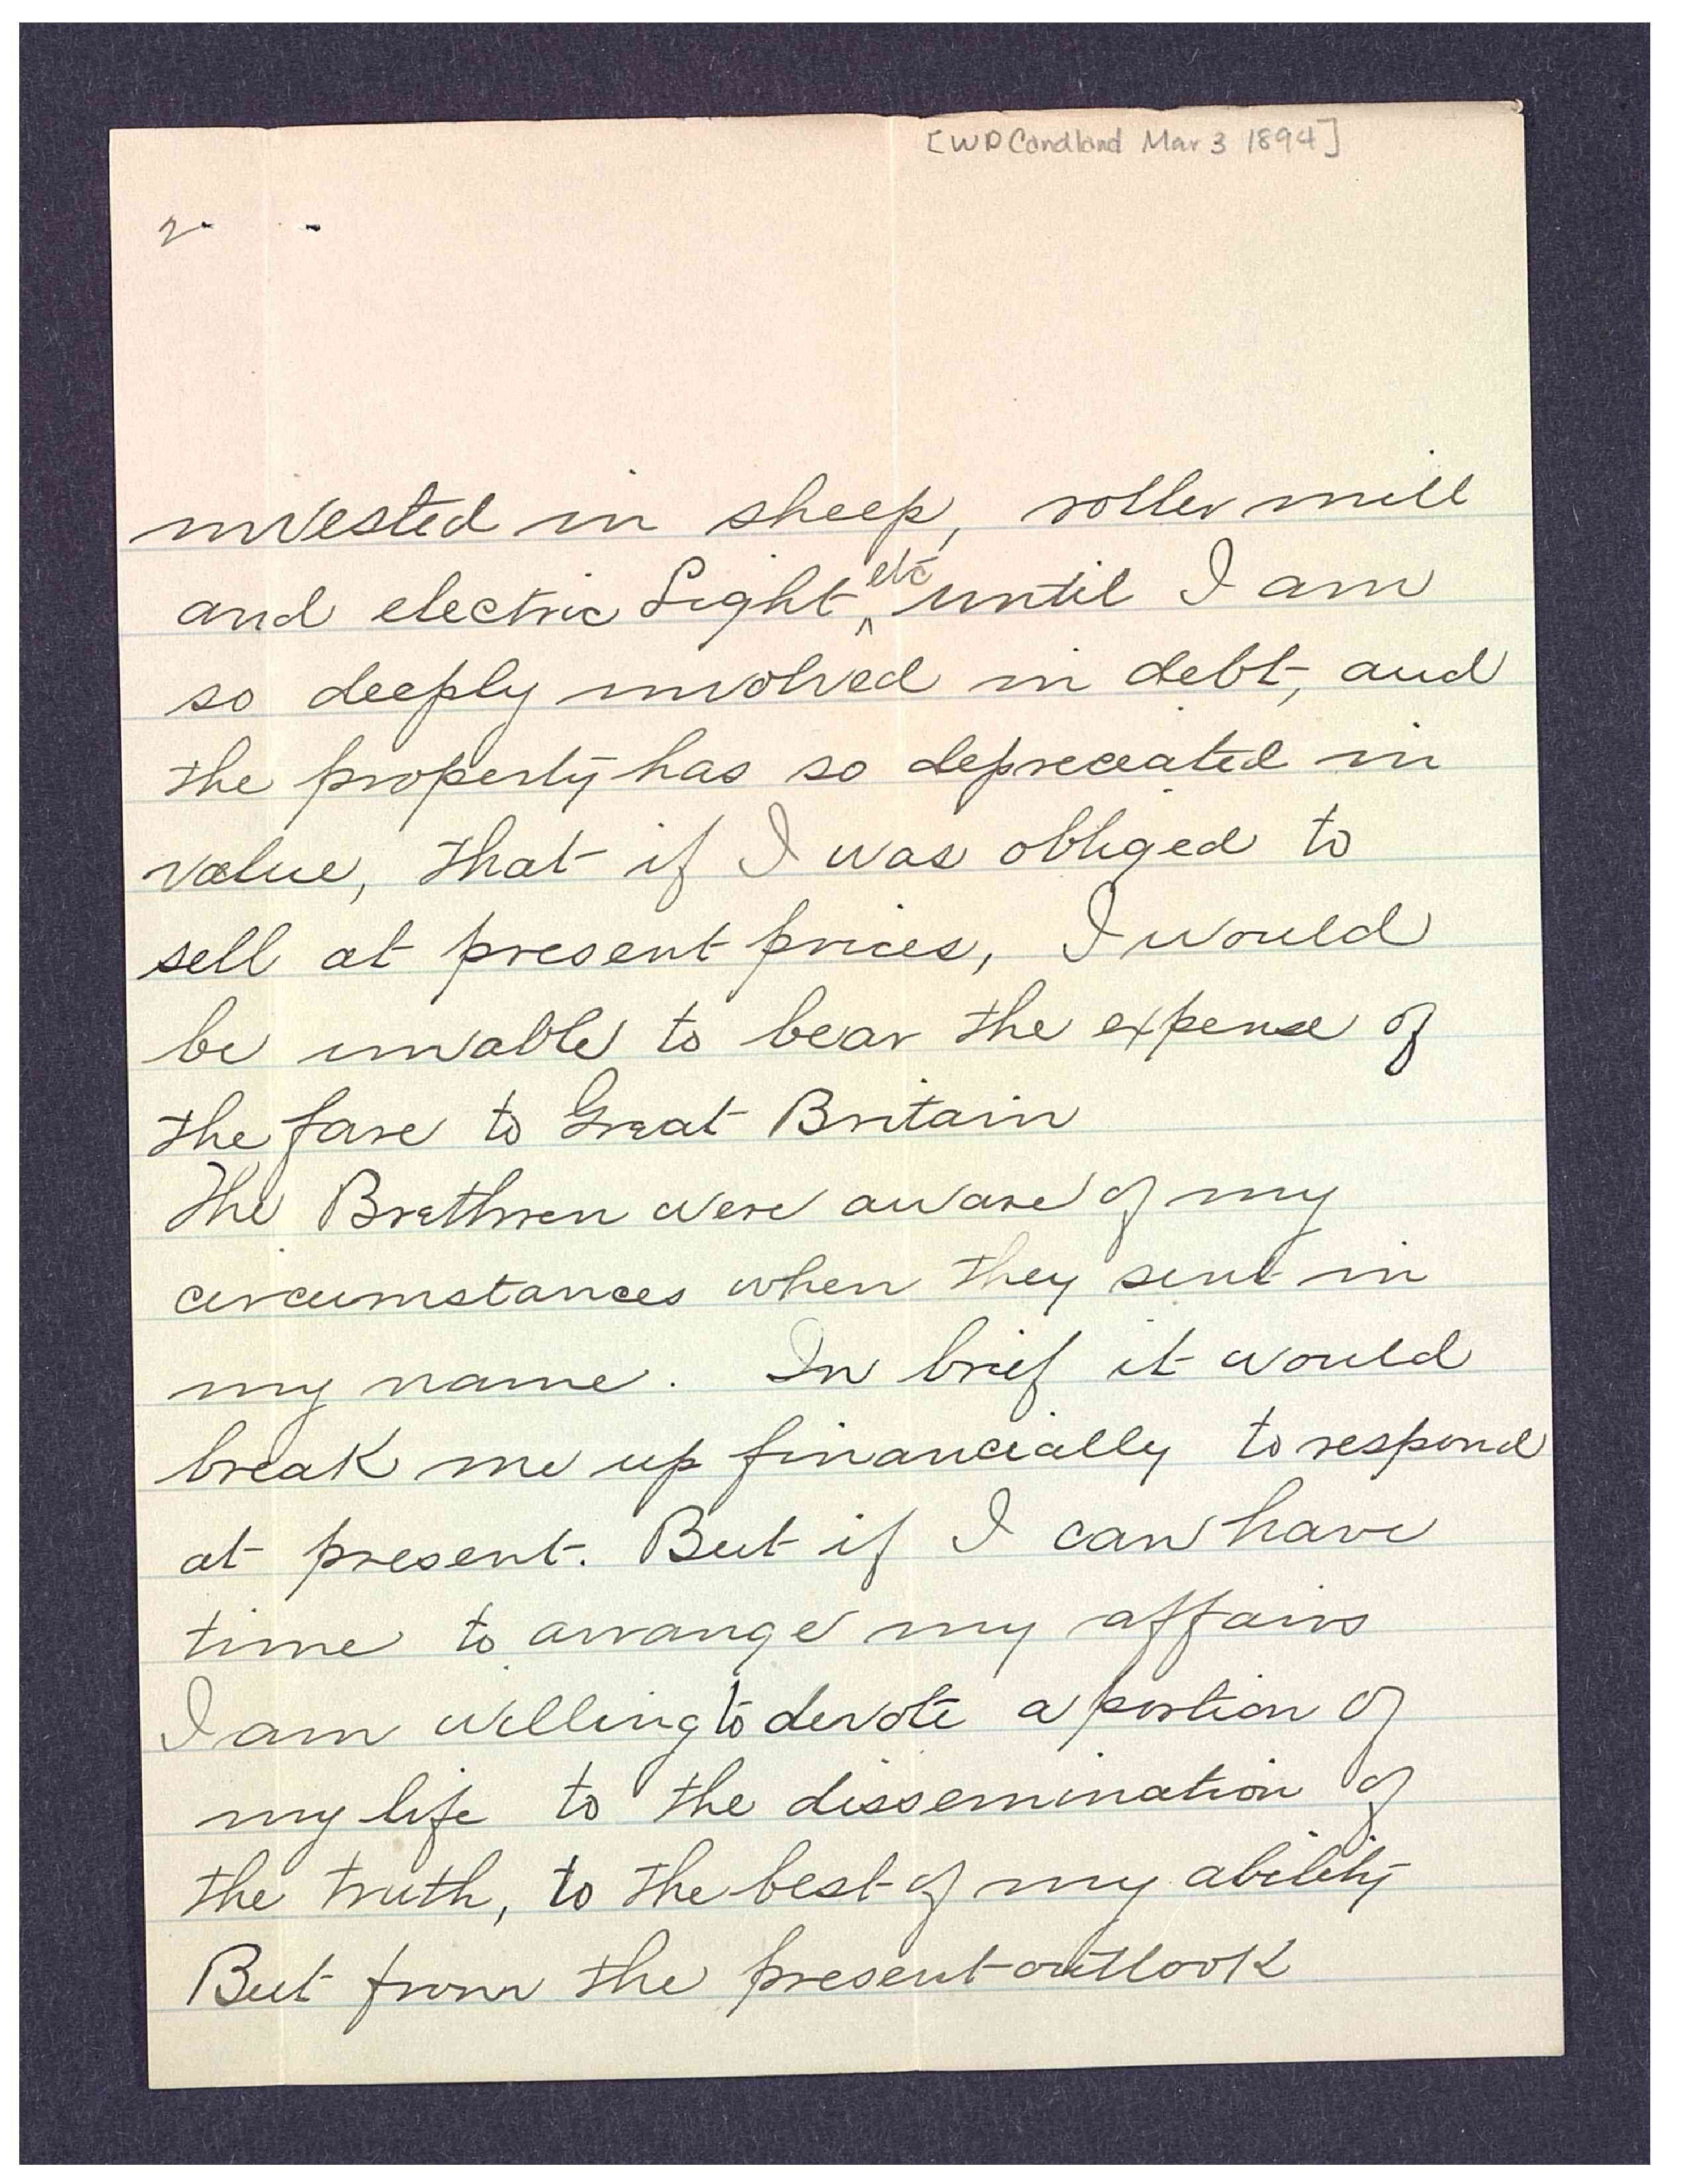 [WD Candland Mar 3 1894]
2
invested in sheep, roller mill
and electric Light ^etc until I am
so deeply involved in debt, and
the property has so depreciated in
value, that if I was obliged to
sell at present prices, I would
be unable to bear the expense of
the fare to Great Britain
The Brethren were aware of my
circumstances when they sent in
my name. In brief it would
break me up financially to respond
at present. But if I can have
time to arrange my affairs
I am willing to devote a portion of
my life to the dissemination of
the truth, to the best of my ability
But from the present outlook